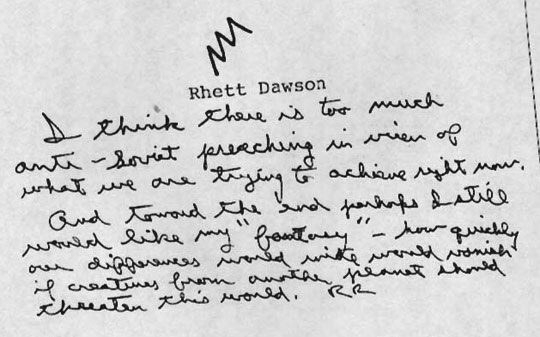 Rhett Dawson
I think there is too much
anti-Soviet preaching in view of
what we are trying to achieve right now.
And toward the end perhaps I still
would like my "fantasy" - how quickly
our differences world wide would vanish
if creatures from another planet should
threaten this world. RR